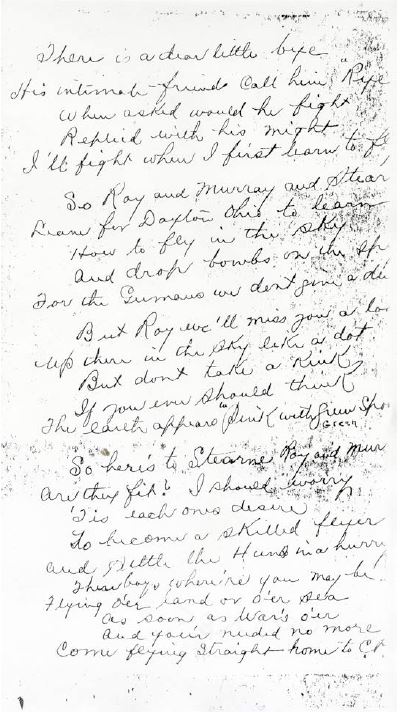 There is a dear little bye
His intimate friends Call him "Rye"
When asked would he fight
Replied with his might
I'll fight when I first learn to f
So Ray and Murray and Stear
Leave for Dayton Ohio to learn
How to fly in the sky
And drop bombs on the sp
For the Germans we don't give a
But Ray we'll miss you a lo
Up there in the sky like a dot
But dont take a Kink
If you ever should think
The earth appears "pink with Green Spo
Green
So here's to Stearne Ray and Mur
Are they fit? I should worry
'Tis each ones desire
To become a skilled flyer
And settle the Huns in a hurry
Then boys where're you may be
Flying o'er land or o'er sea
As soon as War's o'er
And you're needed no more
Come flying Straight home to